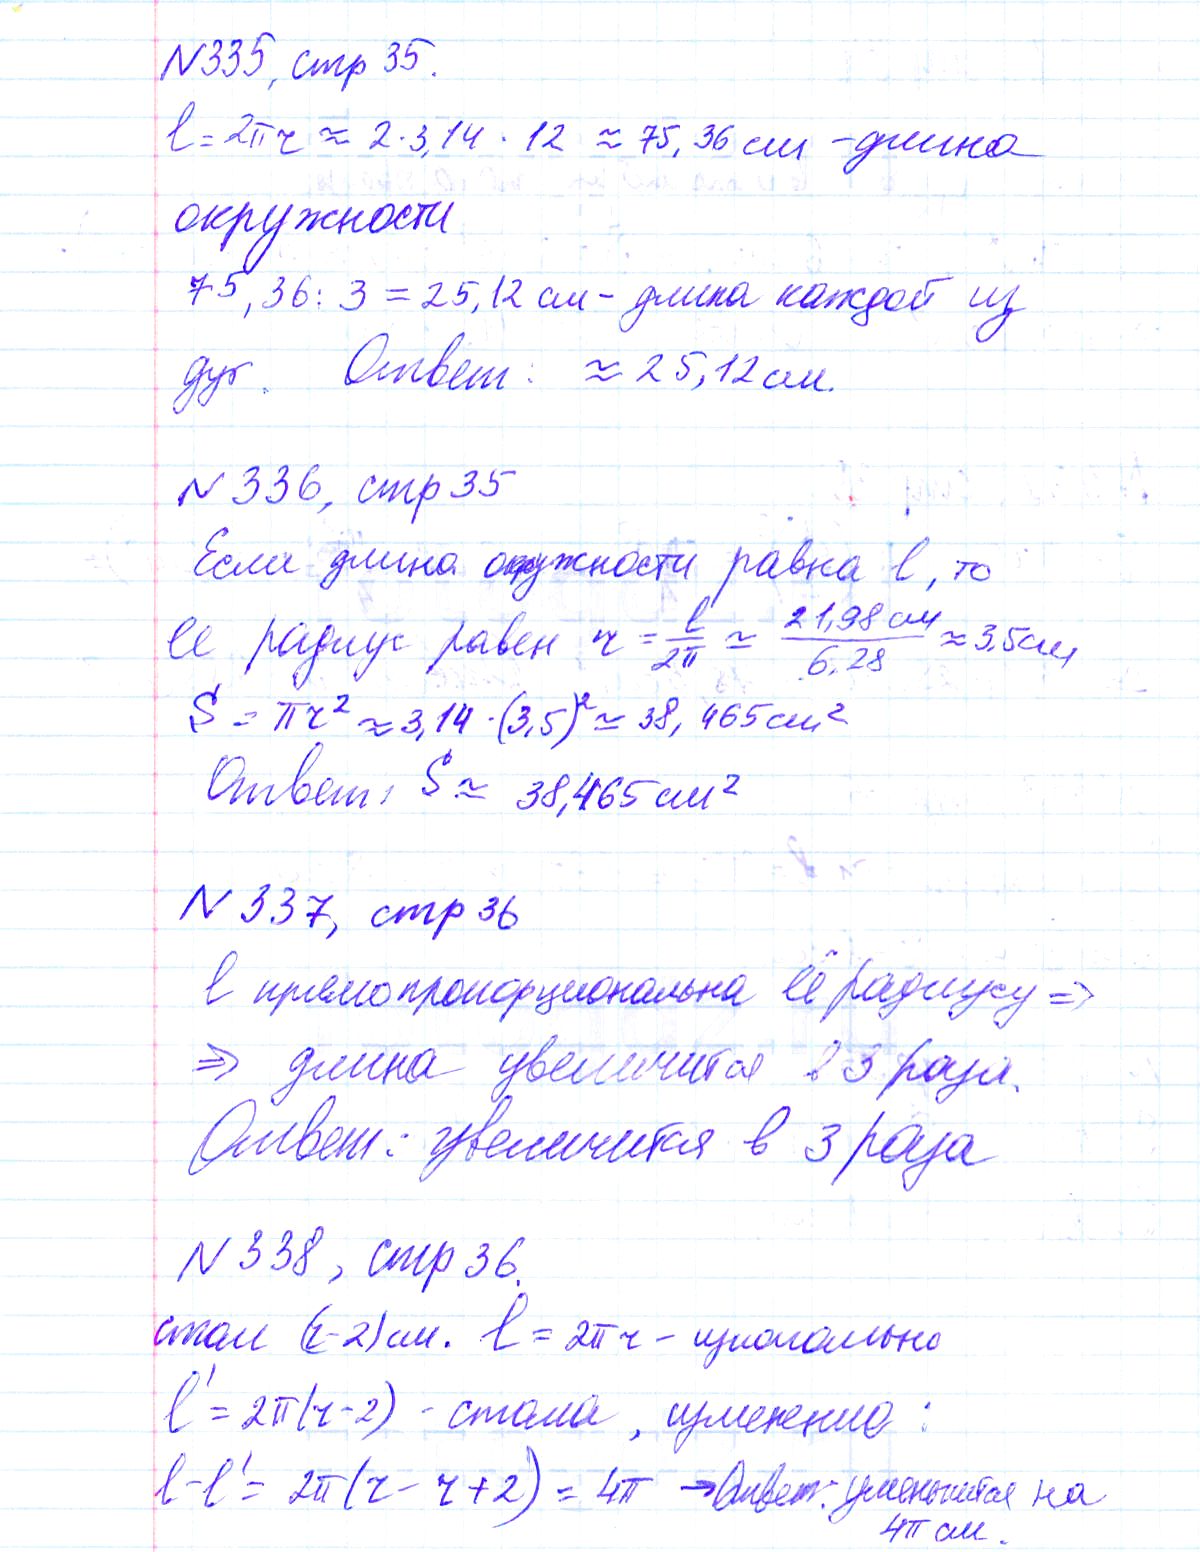 N335, стр 35.
l = 2πr ≈ 2·3,14·12 ≈ 75,36 см - длина
окружности
75,36 : 3 = 25,12 см - длина каждой из
дуг. Ответ: ≈ 25,12 см.
N 336, стр 35
Если длина окружности равна l, то
её радиус равен r = l/2π ≈ 21,98 см/6,28 ≈ 3,5 см
S = πr² ≈ 3,14·(3,5)² ≈ 38,465 см²
Ответ: S ≈ 38,465 см²
N 337, стр 36
l прямопропорциональна её радиусу =>
=> длина увеличится в 3 раза.
Ответ: увеличится в 3 раза
N 338, стр 36.
стал (r-2) см. l = 2πr - изначально
l' = 2π(r-2) - стала, изменение:
l-l' = 2π(r-r+2) = 4π → Ответ: уменьшится на
4π см.